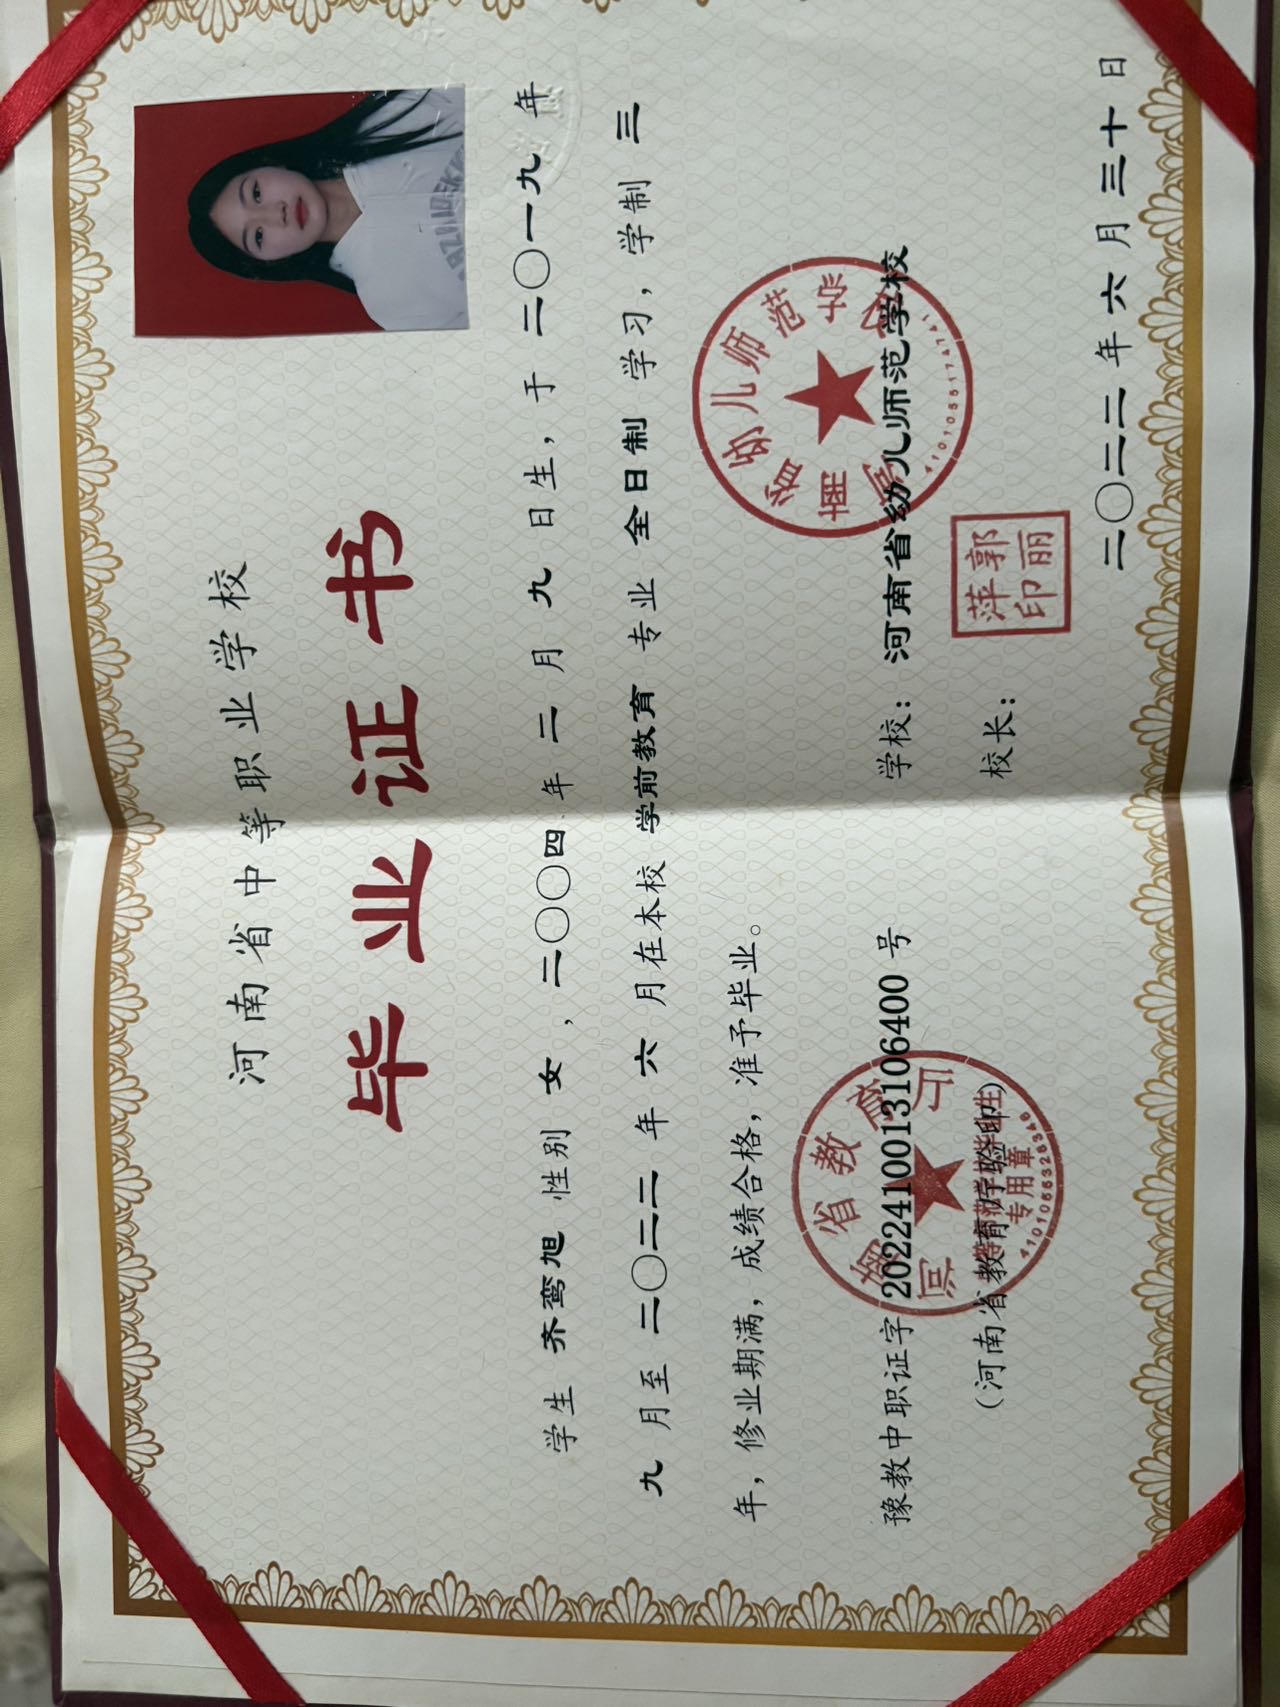 河南省中等职业学校
毕业证书
学生 齐鸾旭 性别 女，二〇〇四年 二 月 九 日生，于 二〇一九 年
九 月至 二〇二二 年 六 月在本校 学前教育 专业 全日制 学习，学制 三
年，修业期满，成绩合格，准予毕业。
豫教中职证字 2022410013106400 号
（河南省教育厅验印）
学校：河南省幼儿师范学校
校长：
郭丽萍印
二〇二二年 六 月 三十 日
河南省幼儿师范学校
4101055174741
河南省教育厅
专用章